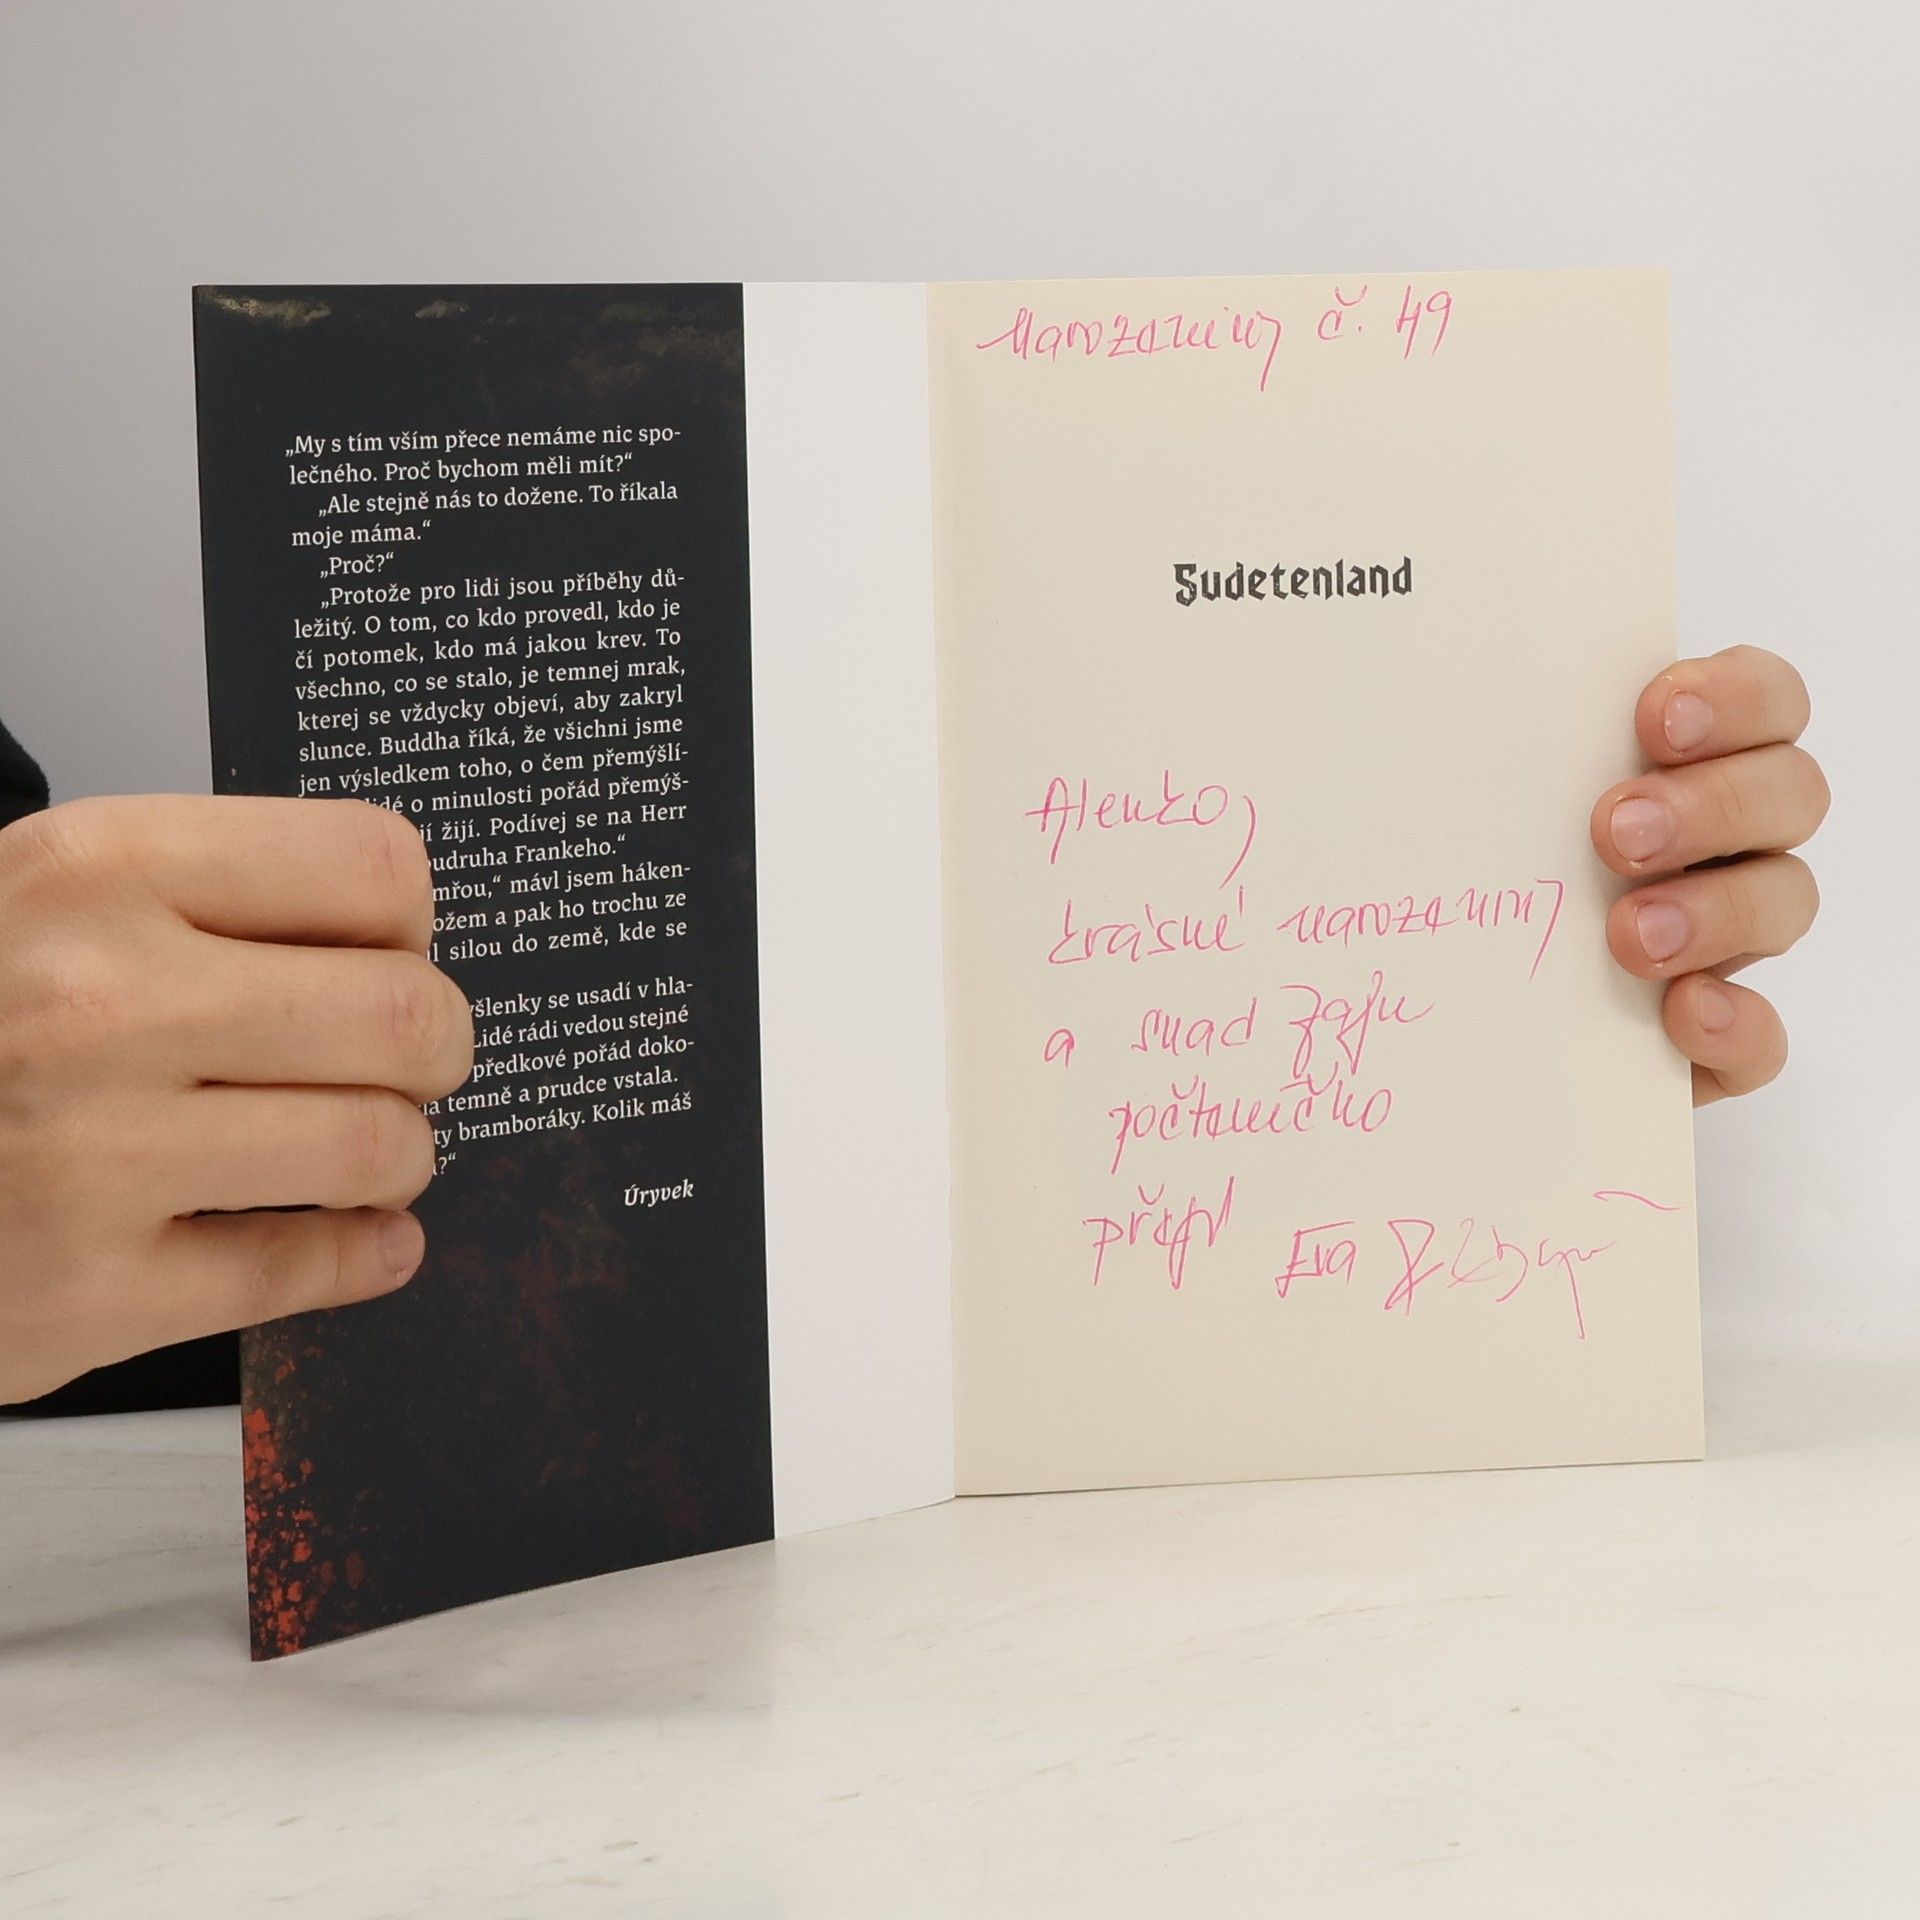 „My s tím vším přece nemáme nic spo-
lečného. Proč bychom měli mít?“
„Ale stejně nás to dožene. To říkala
moje máma.“
„Proč?“
„Protože pro lidi jsou příběhy dů-
ležitý. O tom, co kdo provedl, kdo je
čí potomek, kdo má jakou krev. To
všechno, co se stalo, je temnej mrak,
kterej se vždycky objeví, aby zakryl
slunce. Buddha říká, že všichni jsme
jen výsledkem toho, o čem přemýšlí-
o minulosti pořád přemýš-
žijí. Podívej se na Herr
Frankeho.“
mávl jsem háken-
a pak ho trochu ze
silou do země, kde se
se usadí v hla-
Lidé rádi vedou stejné
předkové pořád doko-
temně a prudce vstala.
ty bramboráky. Kolik máš
Úryvek
Narozeniny č. 49
Sudetenland
Alenko,
krásné narozeniny
a snad
počteníčko
přeje Eva